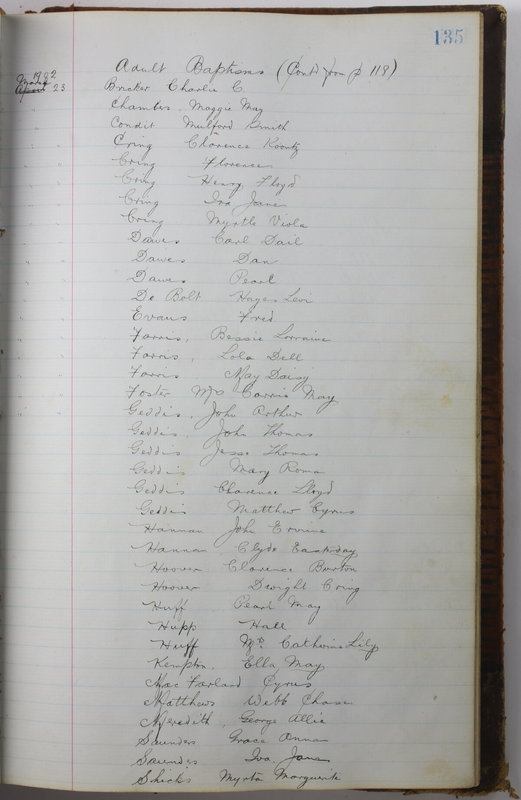 135
Adult Baptisms (Cont'd from p 118)
23 Bricker Charlie C.
Chambers, Maggie May
Condit Mulford Smith
Cring Clarence Koontz
Cring Florence
Cring Henry Floyd
Cring Iva Jane
Cring Myrtle Viola
Dawes Carl Dail
Dawes Dan
Dawes Pearl
De Bolt Hayes Levi
Evans Fred
Farris, Bessie Lorraine
Farris, Lola Dell
Farris May Daisy
Foster Mrs Carrie May
Geddis, John Arthur
Geddis, John Thomas
Geddis Jesse Thomas
Geddis Mary Roma
Geddis Clarence Lloyd
Geddis Matthew Cyrus
Hannan John Ervine
Hanna Clyde Easterday
Hoover Clarence Burton
Hoover Dwight Cring
Huff Pearl May
Hupp Hall
Huff Mrs. Catherine Lily
Kempton, Ella May
Mac Farland Cyrus
Matthews Webb Chase
Meredith, George Allie
Saunders Grace Anna
Saunders Iva Jane
Shicks Myrta Marguerite